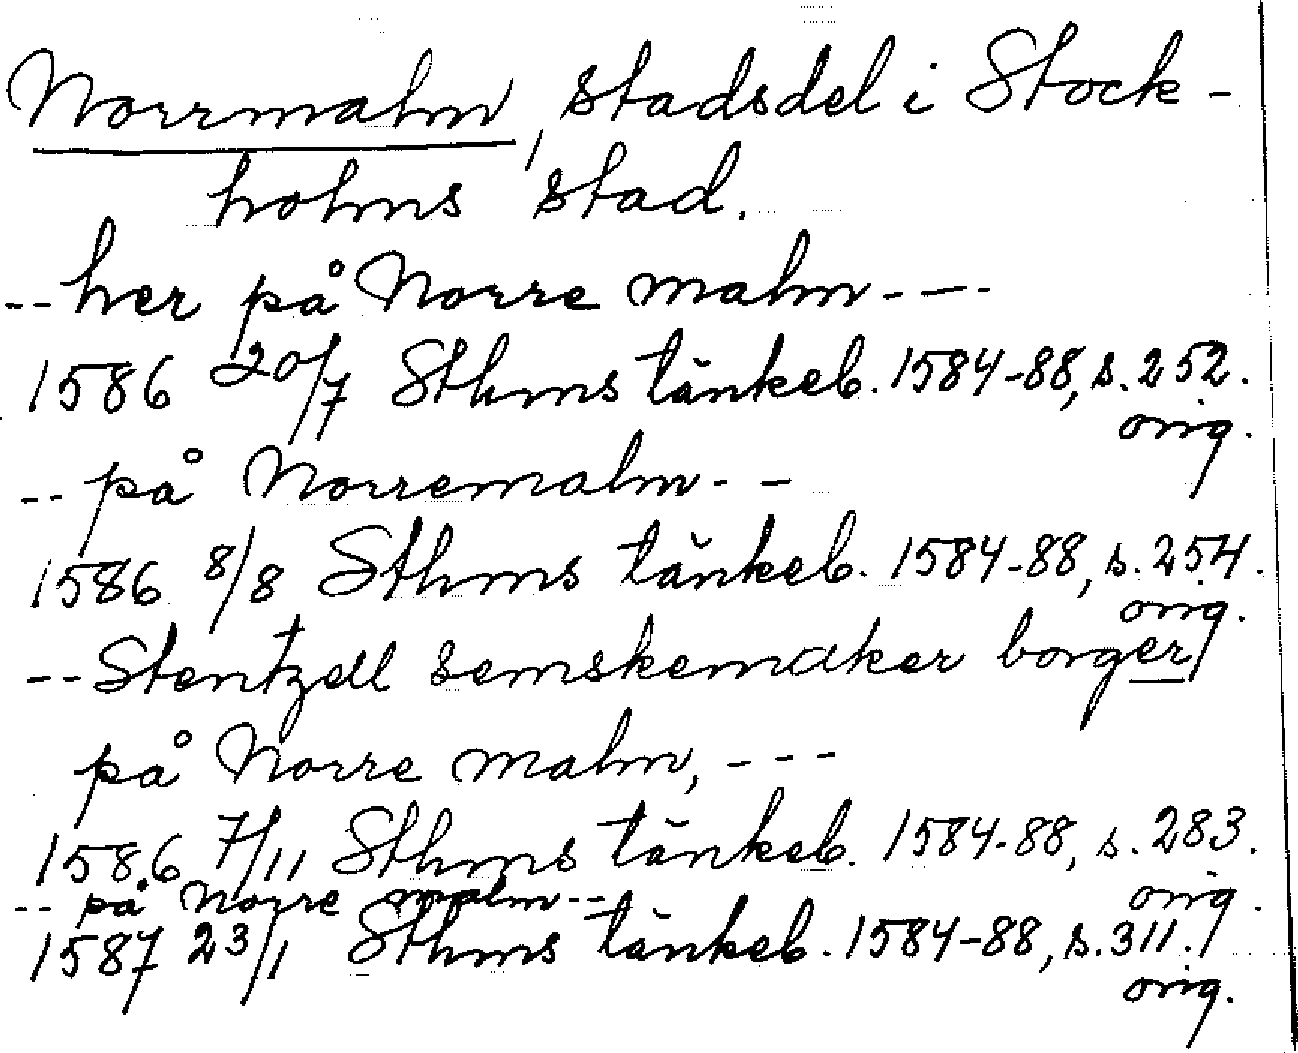 Norrmalm, stadsdel i Stock-
holms stad.
-- her på Norre malm ---
1586 20/7 Sthms tänkeb. 1584-88, s. 252.
orig.
-- på Norremalm --
1586 8/8 Sthms tänkeb. 1584-88, s. 254.
orig.
-- Stentzell semskemaker borger
på Norre malm, ---
1586 7/11 Sthms tänkeb. 1584-88, s. 283.
orig.
-- på Norre malm --
1587 23/1 Sthms tänkeb. 1584-88, s. 311.
orig.